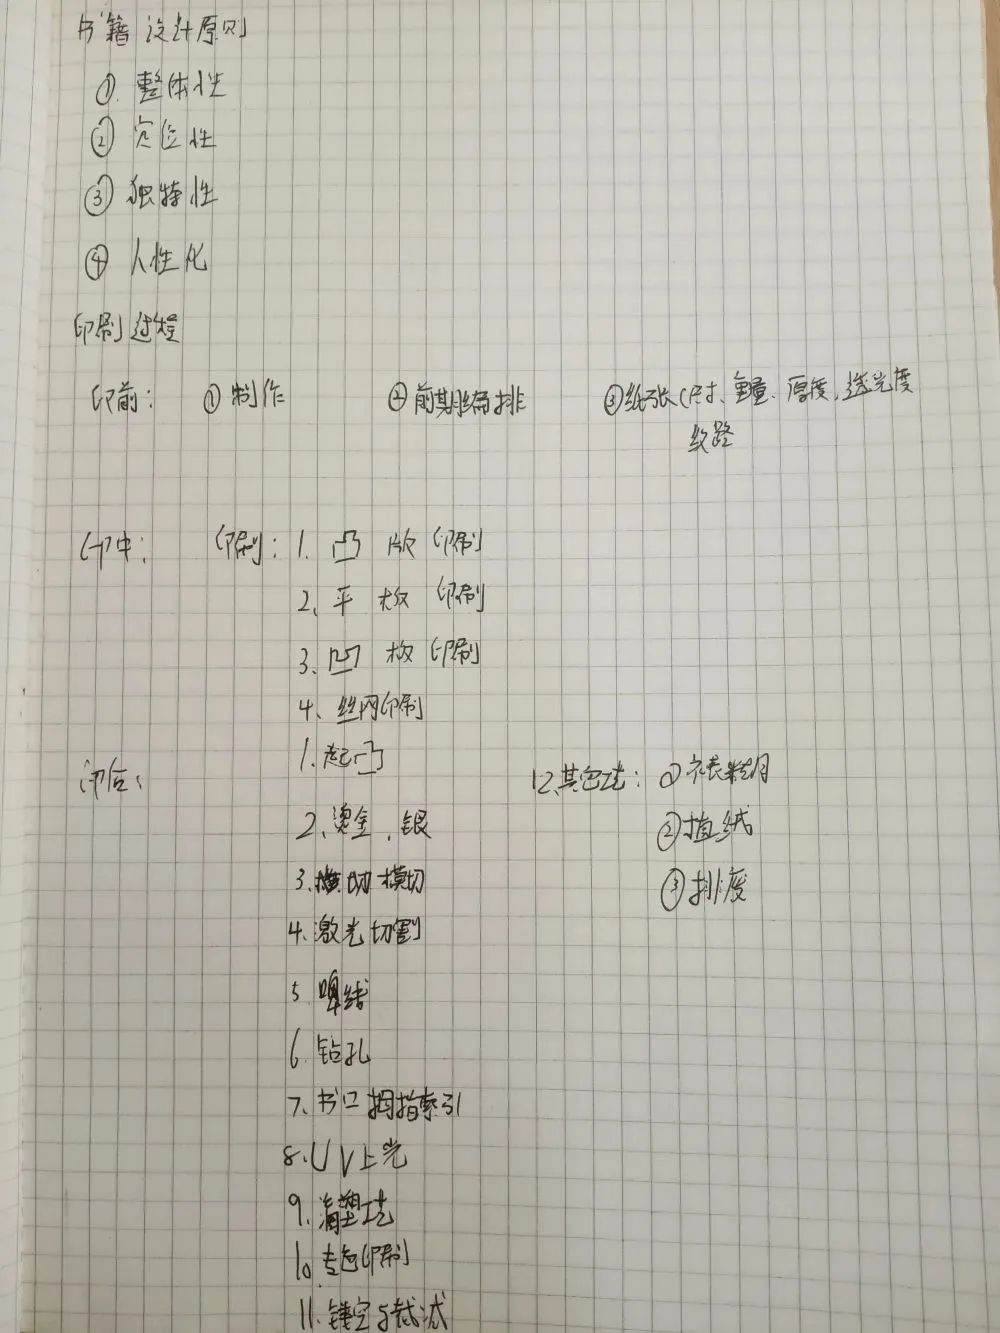 书籍设计原则
① 整体性
② 定位性
③ 独特性
④ 人性化
印刷过程
印前: ① 制作 ② 前期编排 ③ 纸张(尺寸、重量、厚度、透光度
纹路
印中: 印刷: 1. 凸版印刷
2、平板印刷
3. 凹板印刷
4、丝网印刷
印后: 1. 起凸 12、其它工艺: ① 裱糊
2、烫金、银 ② 植绒
3. 模切 ③ 排废
4. 激光切割
5 啤线
6. 钻孔
7. 书口拇指索引
8. UV上光
9. 工艺
10. 专色印刷
11. 镂空与裁